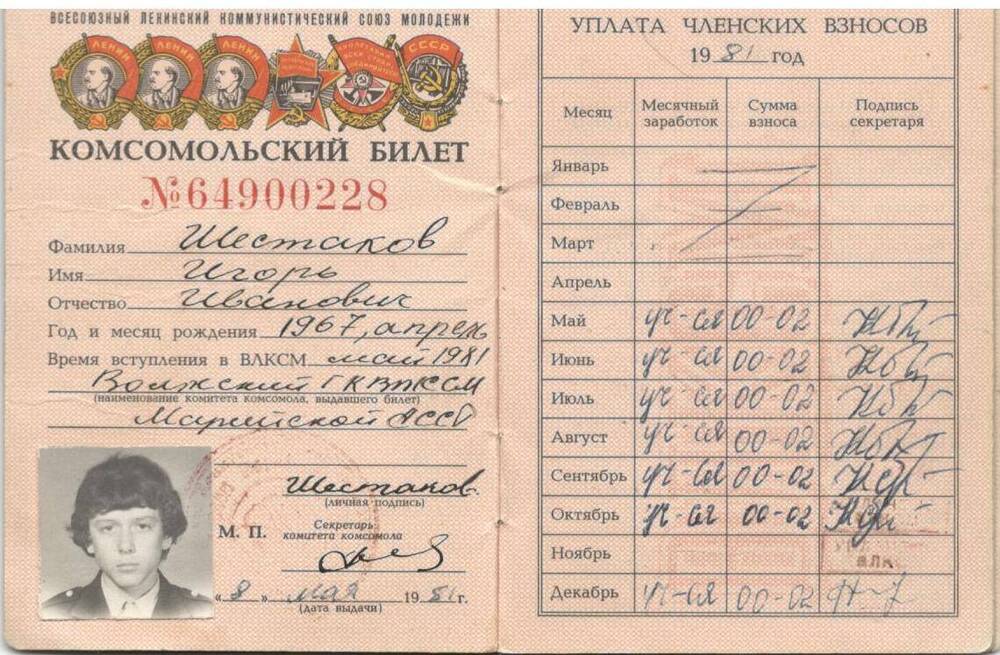 ВСЕСОЮЗНЫЙ ЛЕНИНСКИЙ КОММУНИСТИЧЕСКИЙ СОЮЗ МОЛОДЕЖИ
ЛЕНИН ЛЕНИН ЛЕНИН СССР
КОМСОМОЛЬСКИЙ БИЛЕТ
№64900228
Фамилия Шестаков
Имя Игорь
Отчество Иванович
Год и месяц рождения 1967, апрель
Время вступления в ВЛКСМ май 1981
Волжский ГК ВЛКСМ
(наименование комитета комсомола, выдавшего билет)
Марийской АССР
Шестаков
(личная подпись)
М. П.
Секретарь
комитета комсомола
«8» мая 1981г.
(дата выдачи)
УПЛАТА ЧЛЕНСКИХ ВЗНОСОВ
1981 год
Месяц Месячный заработок Сумма взноса Подпись секретаря
Январь
Февраль
Март
Апрель
Май уч-ся 00-02
Июнь уч-ся 00-02
Июль уч-ся 00-02
Август уч-ся 00-02
Сентябрь уч-ся 00-02
Октябрь уч-ся 00-02
Ноябрь
Декабрь уч-ся 00-02